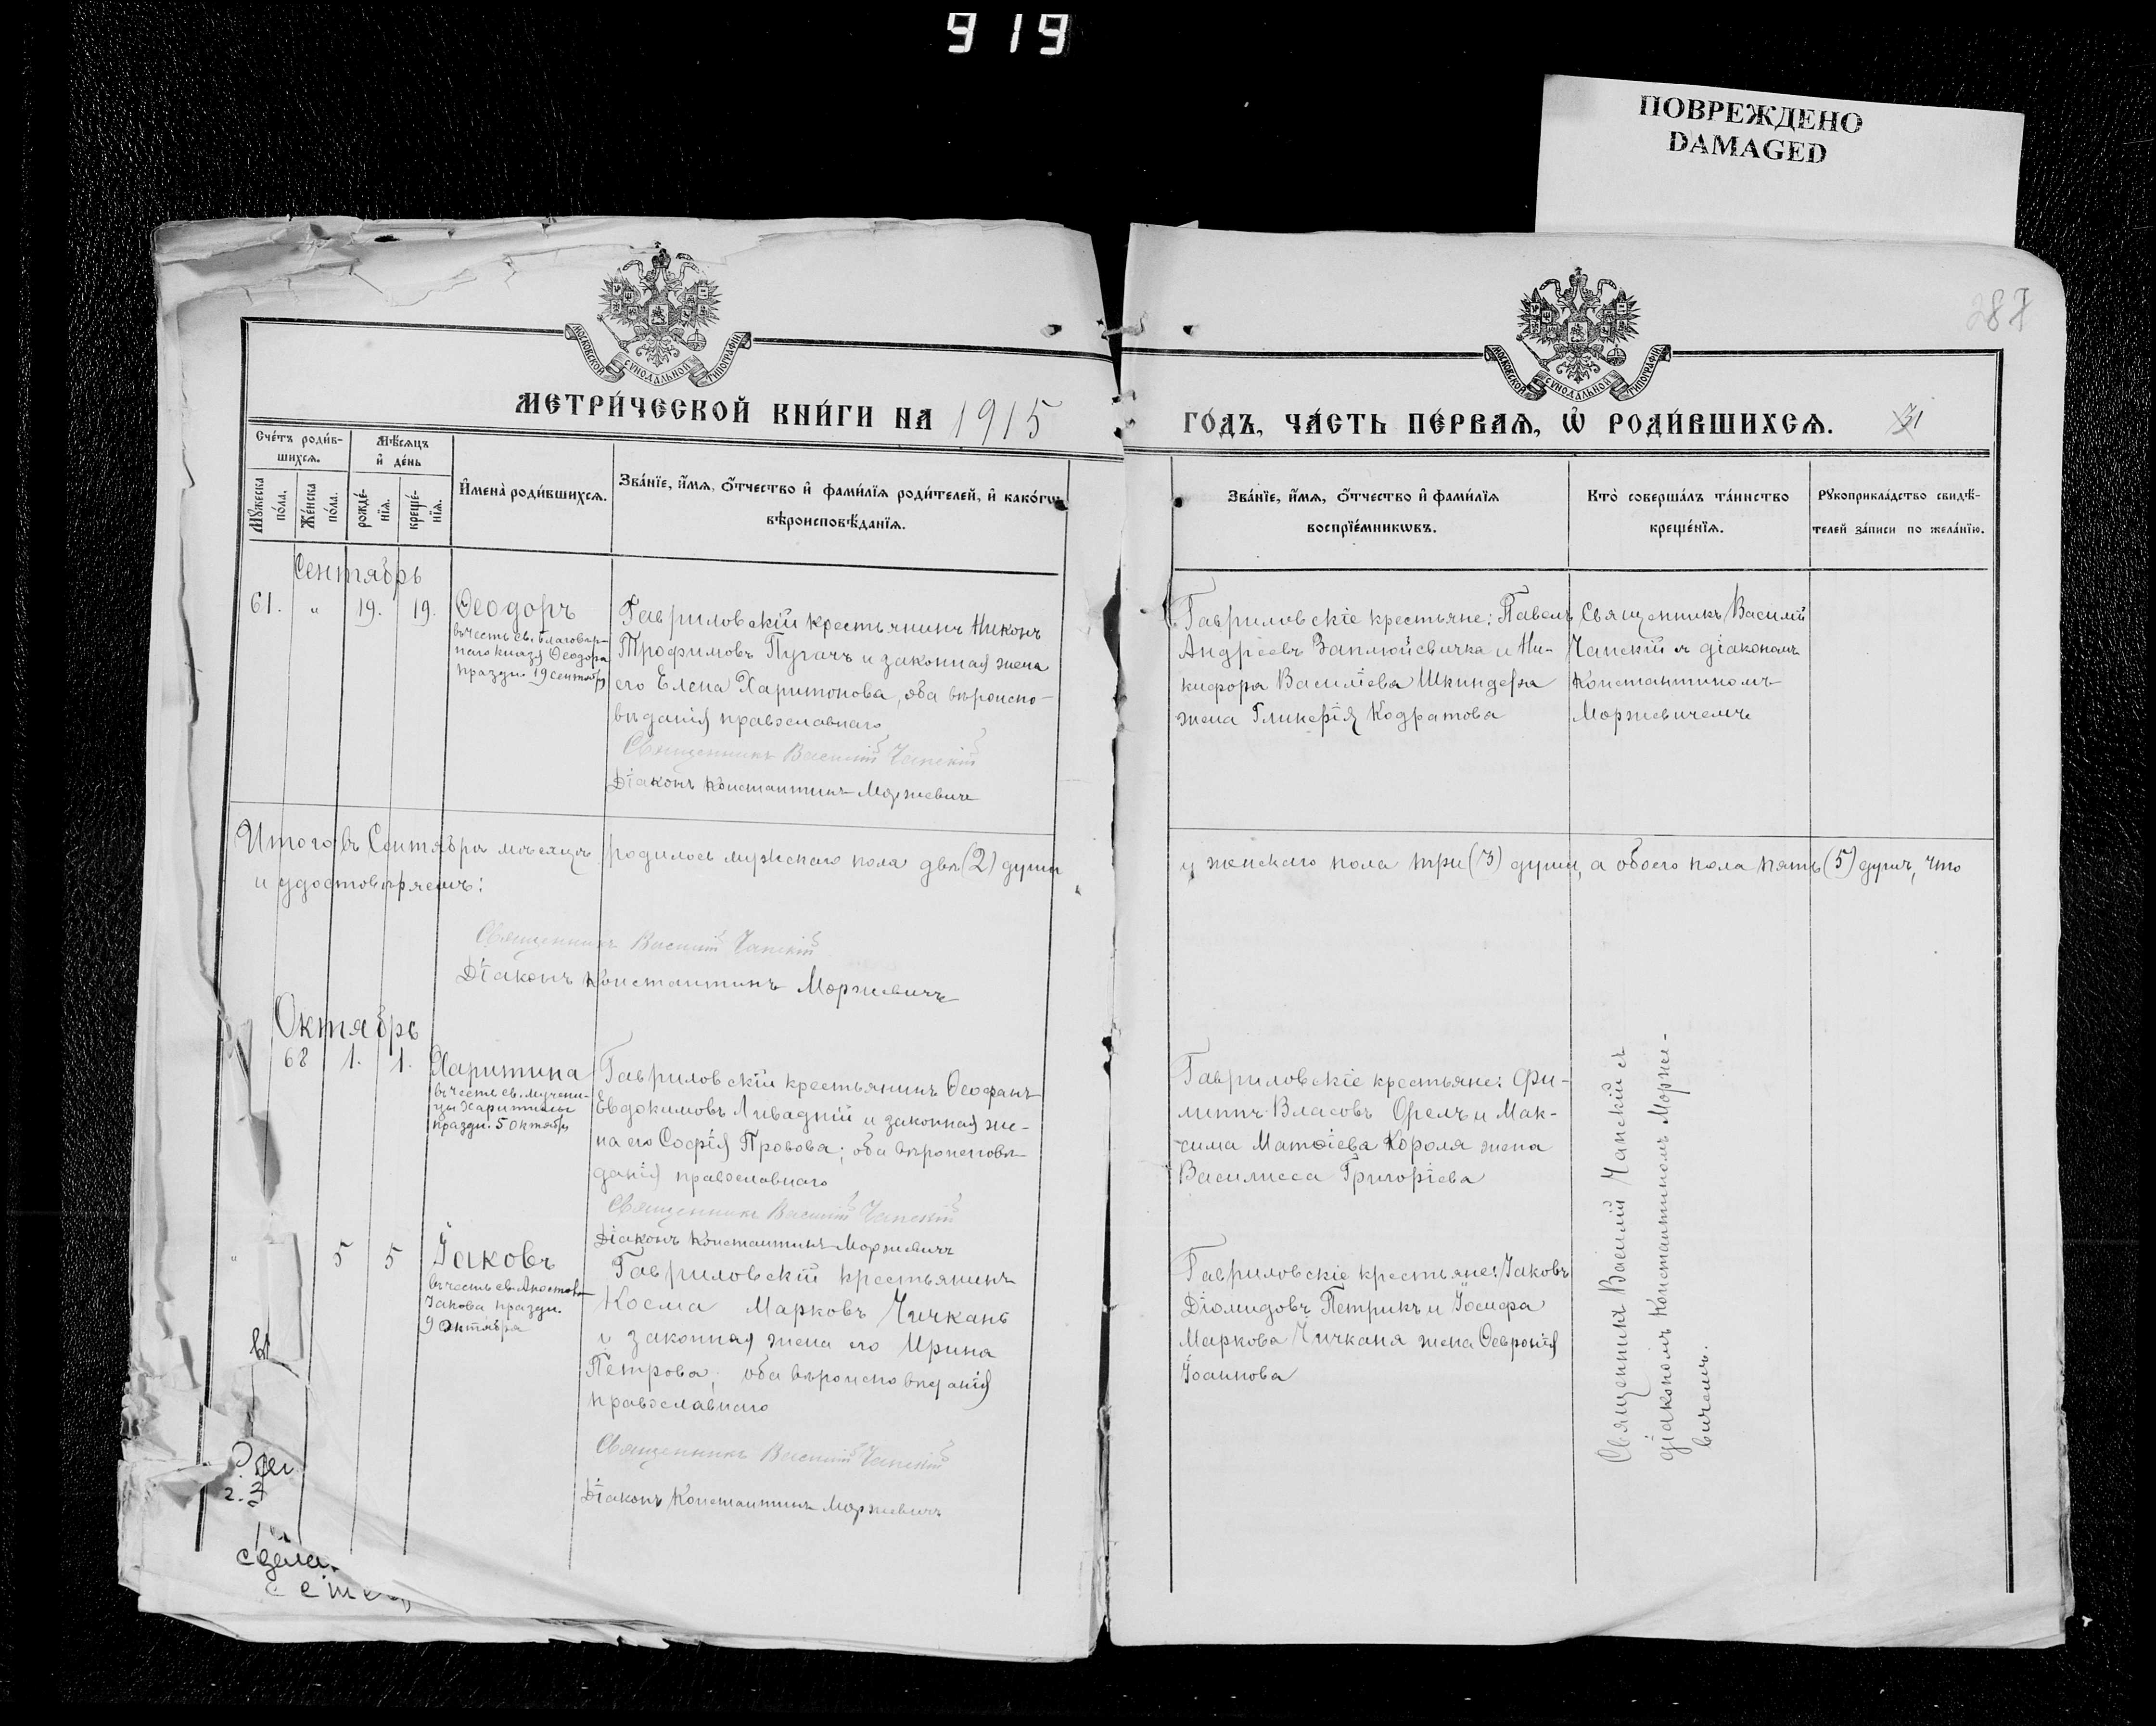 919
ПОВРЕЖДЕНО
DAMAGED
287
МОСКОВСКОЙ СѴНОДАЛЬНОЙ ТИПОГРАФІИ
МОСКОВСКОЙ СѴНОДАЛЬНОЙ ТИПОГРАФІИ
МЕТРИ́ЧЕСКОЙ КНИ́ГИ НА 1915
ГО́ДЪ, ЧА́СТЬ ПЕ́РВАѦ, Ѿ РОДИ́ВШИХСѦ.
31
Сче́тъ роди́в-
шихсѧ.
Мѣ́сѧцъ
и҆ де́нь
Мꙋжеска
по́ла.
Же́нска
по́ла.
рожде́-
нїѧ.
креще́-
нїѧ.
И҆мена̀ роди́вшихсѧ.
Зва́нїе, и҆́мѧ, ѻ҆́тчество и҆ фами́лїѧ роди́телей, и҆ како́гѡ
вѣроисповѣ́данїѧ.
Зва́нїе, и҆́мѧ, ѻ҆́тчество и҆ фами́лїѧ
воспрїе́мникѡвъ.
Кто̀ соверша́лъ та́инство
креще́нїѧ.
Рꙋкоприкла́дство свидѣ́-
телей за́писи по жела́нїю.
Сентябрь
61. " 19. 19.
Ѳеодоръ
въ честь св. благовѣр-
наго князя Ѳеодора
праздн. 19 сентября
Гавриловскій крестьянинъ Никонъ
Трофимовъ Пугачъ и законная жена
его Елена Харитонова, оба вѣроиспо-
вѣданія православнаго
Священникъ Василій Чапскій
Діаконъ Константинъ Моржевичъ
Гавриловскіе крестьяне: Павелъ
Андреевъ Заплюйсвичка и Ни-
кифора Василіева Шкиндера
жена Гликерія Кодратова
Священникъ Василій
Чапскій съ діакономъ
Константиномъ
Моржевичемъ
Итого въ Сентябрѣ мѣсяцѣ родилось мужскаго пола двѣ (2) души
и женскаго пола три (3) души, а обоего пола пять (5) душъ, что
и удостовѣряемъ:
Священникъ Василій Чапскій
Діаконъ Константинъ Моржевичъ
Октябрь
68 1. 1.
Харитина
въ честь св. мучени-
цы Харитины
праздн. 5 октября
Гавриловскій крестьянинъ Ѳеофанъ
Евдокимовъ Ливадній и законная же-
на его Софія Провова; оба вѣроисповѣ-
данія православнаго
Священникъ Василій Чапскій
Діаконъ Константинъ Моржевичъ
Гавриловскіе крестьяне: Фи-
липпъ Власовъ Орелъ и Мак-
сима Матѳіева Короля жена
Василисса Григоріева
Священникъ Василій Чапскій съ
діакономъ Константиномъ Морже-
вичемъ.
" 5 5
Іаковъ
въ честь св. Апостола
Іакова праздн.
9 октября
Гавриловскій крестьянинъ
Косма Марковъ Чичкань
и законная жена его Ирина
Петрова; оба вѣроисповѣданія
православнаго
Священникъ Василій Чапскій
Діаконъ Константинъ Моржевичъ
Гавриловскіе крестьяне: Іаковъ
Діомидовъ Петрикъ и Іосифа
Маркова Чичканя жена Ѳевронія
Іоаннова